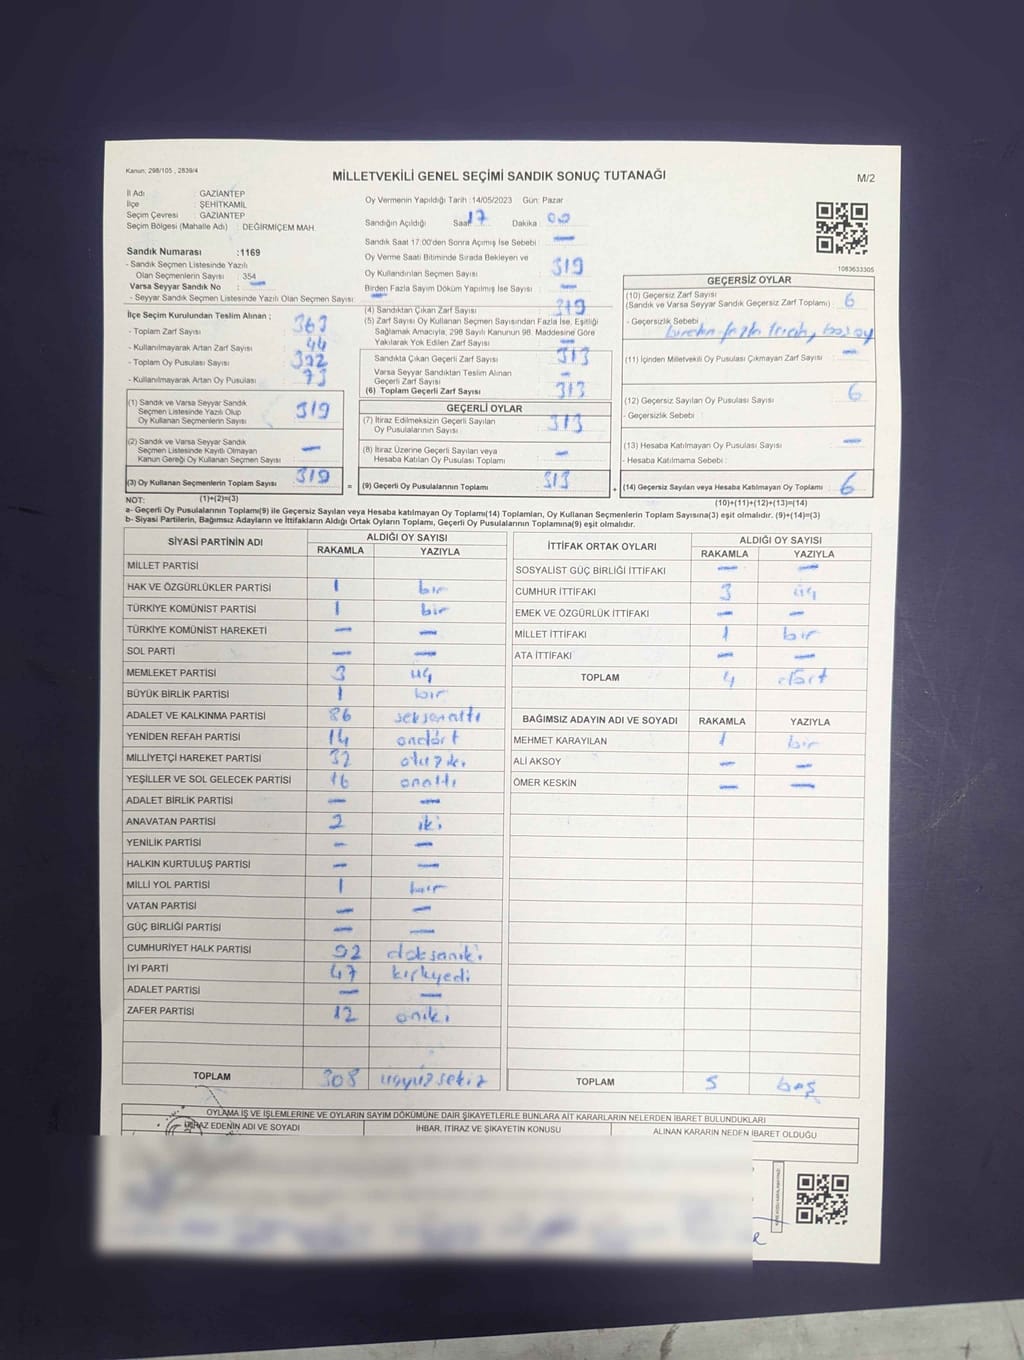 Kanun, 298/105 , 2839/4
MİLLETVEKİLİ GENEL SEÇİMİ SANDIK SONUÇ TUTANAĞI
M/2
İl Adı GAZİANTEP
İlçe ŞEHİTKAMİL
Seçim Çevresi : GAZİANTEP
Seçim Bölgesi (Mahalle Adı) : DEĞİRMİÇEM MAH.
Oy Vermenin Yapıldığı Tarih :14/05/2023 Gün: Pazar
Sandığın Açıldığı Saat 17 Dakika : 00
Sandık Saat 17:00'den Sonra Açımış İse Sebebi : —
Oy Verme Saati Bitiminde Sırada Bekleyen ve
Oy Kullandırılan Seçmen Sayısı 319
Birden Fazla Sayım Döküm Yapılmış İse Sayısı —
Sandık Numarası :1169
- Sandık Seçmen Listesinde Yazılı
Olan Seçmenlerin Sayısı : 354
Varsa Seyyar Sandık No : —
- Seyyar Sandık Seçmen Listesinde Yazılı Olan Seçmen Sayısı: —
İlçe Seçim Kurulundan Teslim Alınan ;
- Toplam Zarf Sayısı : 363
- Kullanılmayarak Artan Zarf Sayısı : 44
- Toplam Oy Pusulası Sayısı : 392
- Kullanılmayarak Artan Oy Pusulası : 73
(1) Sandık ve Varsa Seyyar Sandık
Seçmen Listesinde Yazılı Olup
Oy Kullanan Seçmenlerin Sayısı 319
(2) Sandık ve Varsa Seyyar Sandık
Seçmen Listesinde Kayıtlı Olmayan
Kanun Gereği Oy Kullanan Seçmen Sayısı —
(3) Oy Kullanan Seçmenlerin Toplam Sayısı 319
(4) Sandıktan Çıkan Zarf Sayısı 319
(5) Zarf Sayısı Oy Kullanan Seçmen Sayısından Fazla İse, Eşitliği
Sağlamak Amacıyla, 298 Sayılı Kanunun 98. Maddesine Göre
Yakılarak Yok Edilen Zarf Sayısı —
Sandıkta Çıkan Geçerli Zarf Sayısı 313
Varsa Seyyar Sandıktan Teslim Alınan
Geçerli Zarf Sayısı —
(6) Toplam Geçerli Zarf Sayısı 313
GEÇERLİ OYLAR
(7) İtiraz Edilmeksizin Geçerli Sayılan
Oy Pusulalarının Sayısı 313
(8) İtiraz Üzerine Geçerli Sayılan veya
Hesaba Katılan Oy Pusulası Toplamı —
= (9) Geçerli Oy Pusulalarının Toplamı 313
1083633305
GEÇERSİZ OYLAR
(10) Geçersiz Zarf Sayısı
(Sandık ve Varsa Seyyar Sandık Geçersiz Zarf Toplamı) : 6
- Geçersizlik Sebebi :
(11) İçinden Milletvekili Oy Pusulası Çıkmayan Zarf Sayısı —
(12) Geçersiz Sayılan Oy Pusulası Sayısı 6
- Geçersizlik Sebebi :
(13) Hesaba Katılmayan Oy Pusulası Sayısı —
- Hesaba Katılmama Sebebi :
+ (14) Geçersiz Sayılan veya Hesaba Katılmayan Oy Toplamı 6
NOT: (1)+(2)=(3) (10)+(11)+(12)+(13)=(14)
a- Geçerli Oy Pusulasının Toplamı(9) ile Geçersiz Sayılan veya Hesaba katılmayan Oy Toplamı(14) Toplamları, Oy Kullanan Seçmenlerin Toplam Sayısına(3) eşit olmalıdır. (9)+(14)=(3)
b- Siyasi Partilerin, Bağımsız Adayların ve İttifakların Aldığı Ortak Oyların Toplamı, Geçerli Oy Pusulalarının Toplamına(9) eşit olmalıdır.
SİYASİ PARTİNİN ADI ALDIĞI OY SAYISI
RAKAMLA YAZIYLA
MİLLET PARTİSİ
HAK VE ÖZGÜRLÜKLER PARTİSİ 1 bir
TÜRKİYE KOMÜNİST PARTİSİ 1 bir
TÜRKİYE KOMÜNİST HAREKETİ — —
SOL PARTİ — —
MEMLEKET PARTİSİ 3 üç
BÜYÜK BİRLİK PARTİSİ 1 bir
ADALET VE KALKINMA PARTİSİ 86 seksenaltı
YENİDEN REFAH PARTİSİ 14 ondört
MİLLİYETÇİ HAREKET PARTİSİ 32 otuziki
YEŞİLLER VE SOL GELECEK PARTİSİ 16 onaltı
ADALET BİRLİK PARTİSİ — —
ANAVATAN PARTİSİ 2 iki
YENİLİK PARTİSİ — —
HALKIN KURTULUŞ PARTİSİ — —
MİLLİ YOL PARTİSİ 1 bir
VATAN PARTİSİ — —
GÜÇ BİRLİĞİ PARTİSİ — —
CUMHURİYET HALK PARTİSİ 92 doksaniki
İYİ PARTİ 47 kırkyedi
ADALET PARTİSİ — —
ZAFER PARTİSİ 12 oniki
TOPLAM 308 üçyüzsekiz
İTTİFAK ORTAK OYLARI ALDIĞI OY SAYISI
RAKAMLA YAZIYLA
SOSYALİST GÜÇ BİRLİĞİ İTTİFAKI — —
CUMHUR İTTİFAKI 3 üç
EMEK VE ÖZGÜRLÜK İTTİFAKI — —
MİLLET İTTİFAKI 1 bir
ATA İTTİFAKI — —
TOPLAM 4 dört
BAĞIMSIZ ADAYIN ADI VE SOYADI RAKAMLA YAZIYLA
MEHMET KARAYILAN 1 bir
ALİ AKSOY — —
ÖMER KESKİN — —
TOPLAM 5 beş
OYLAMA İŞ VE İŞLEMLERİNE VE OYLARIN SAYIM DÖKÜMÜNE DAİR ŞİKAYETLERLE BUNLARA AİT KARARLARIN NELERDEN İBARET BULUNDUKLARI
İTİRAZ EDENİN ADI VE SOYADI İHBAR, İTİRAZ VE ŞİKAYETİN KONUSU ALINAN KARARIN NEDEN İBARET OLDUĞU